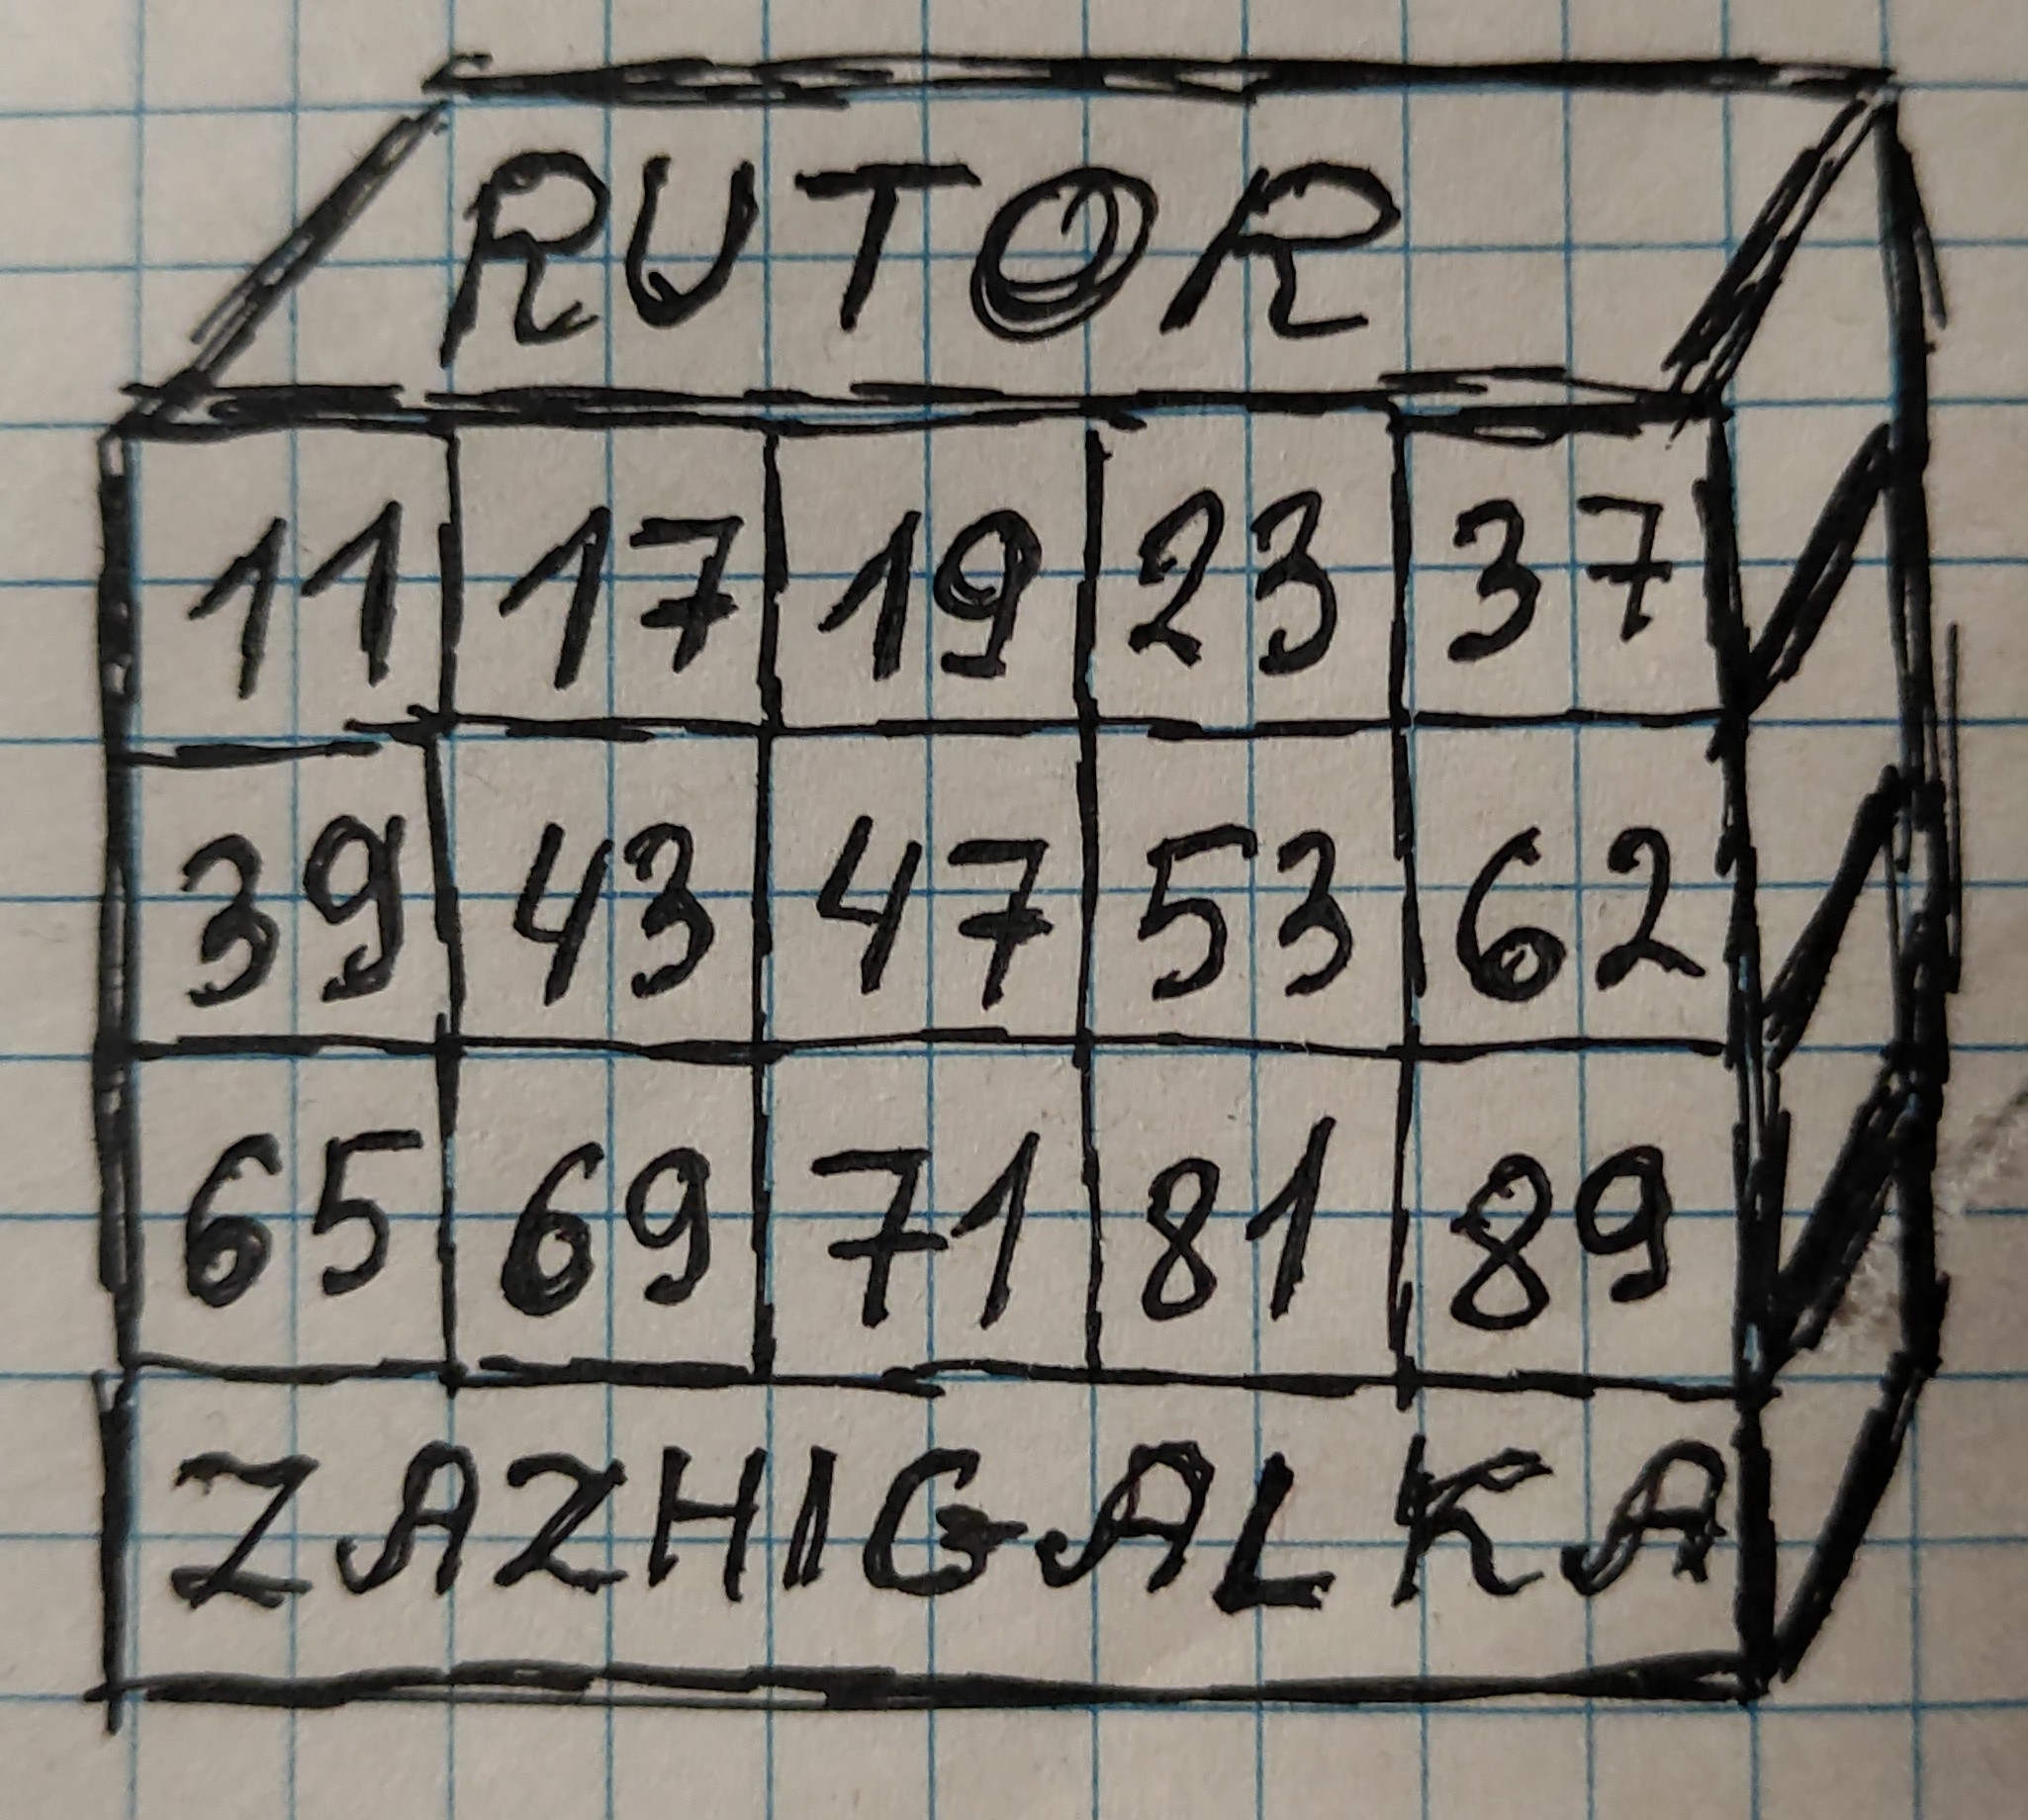 RUTOR
11 17 19 23 37
39 43 47 53 62
65 69 71 81 89
ZAZHIGALKA